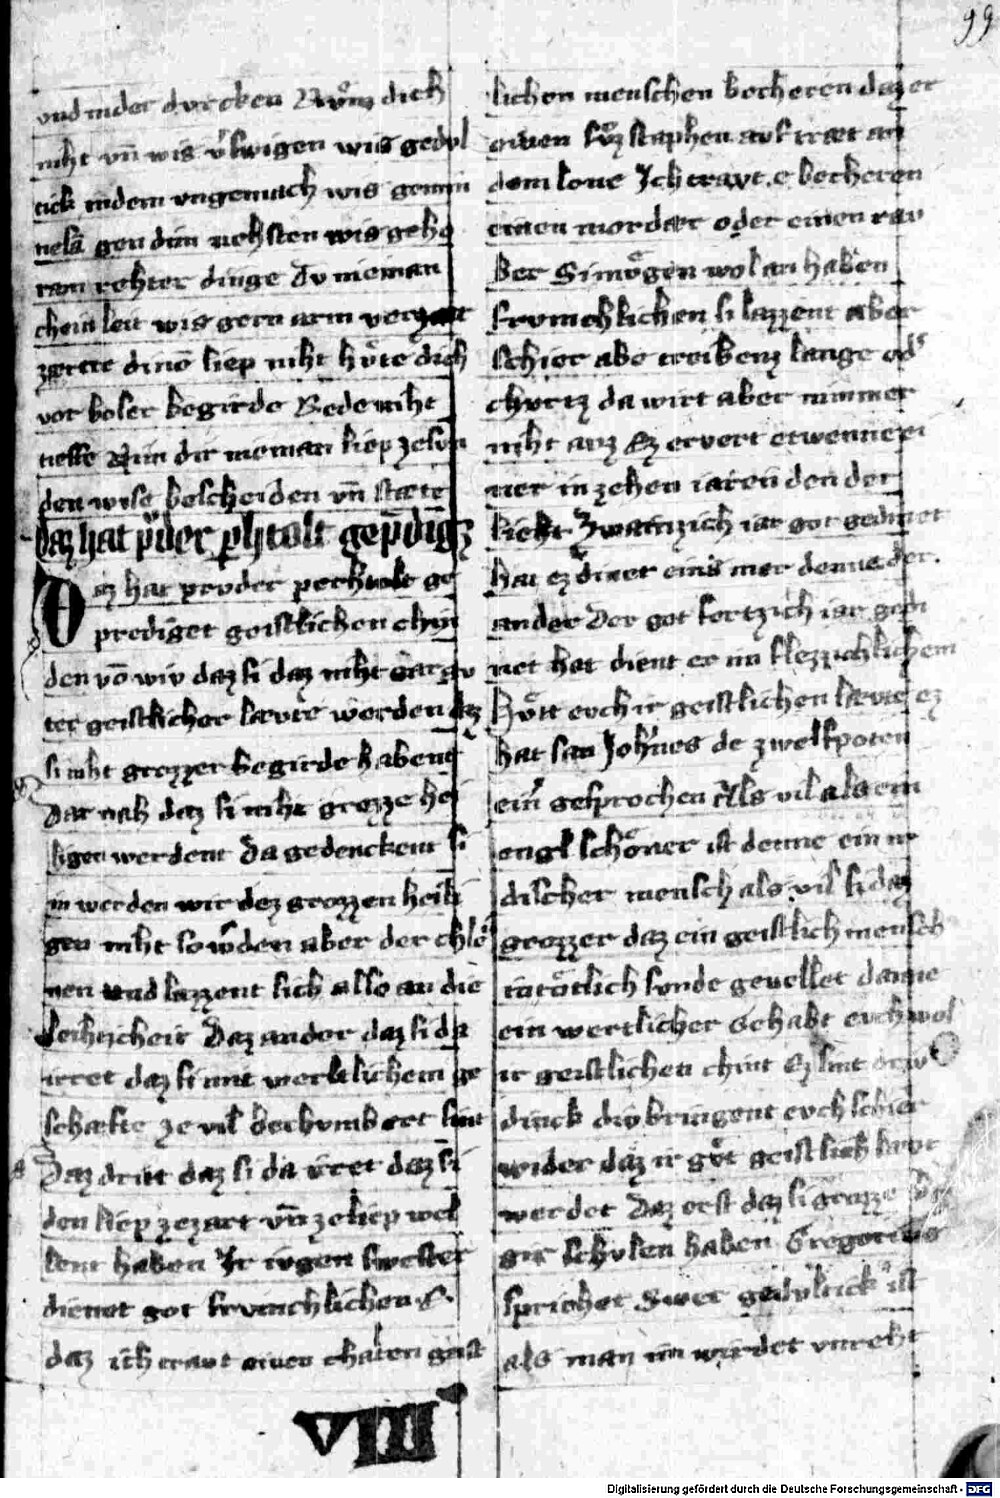 99
vnd inder dvrcken Rvͦm dich
niht vn̄ wis v̓swigen wis gedvl
tick indem vngemach wis gemin
gen dim nehsten wis geho
ram rehter dinge Tv nieman
chein leit wis gern arm
zertte dinē liep niht hvͤte dich
vor boser begirde Rede niht
Nim dir nieman liep ze
den wise bescheiden vn̄ stæte
Daz hat pͮder ꝑhtolt
Daz hat prvder perhtolt ge
prediget geistlichen chin
den vō wiv daz si daz niht gar gv
ter geistlicher lævte werdent daz
si niht grozzer begirde habent
Dar nah daz si niht grozze hei
ligen werdent Da gedenckent si
in werden wir dez grozzen heili
gen niht so wͤden aber der chlei
nen vnd lazzent sich also an die
leihticheit Daz ander daz si da
irret daz si mit wertlichem ge
schæfte ze vil bechvmbert sint
Daz dritt daz si da irret daz si
den liep ze zart vn̄ ze liep wel
lent haben Ir ivgen swester
dienet got frvmchlichen E
daz ich travt einen chalten geist
lichen menschen becheren daz er
einen fvͦz staphen avf træt an
dem lone Ich travt e becheren
einen mordær oder einen rav
ber Si mvͤgen wol an haben
frvmchlichen si lazzent aber
schier abe treibenz lange od̓
chvrtz da wirt aber nimmer
niht avz Ez ervert etwenne ei
ner in zehen iaren den der
lieht Zwainzich iar got gedinet
hat ez dinet eins mer denne der
ander Der got fertzich iar gedi
net hat dient er im flezzichlichem
Hvͤtt evch ir geistlichen lævte ez
hat san John̄es de zwelfpoten
ein̓ gesprochen Als vil als ein
engl schoͤner ist denne ein ir
discher mensch als vil si daz
grozzer daz ein geistlich mensch
in toͤtlich svnde gevellet danne
ein wertlicher Gehabt evch wol
ir geistlichen chint Ez sint drev
dinck div bringent evch schier
wider daz ir gvͦt geistlich lævt
werdet Daz erst daz si grozze be
gir schvlen haben Gregorivs
sprichet Swer gedvltick ist
als man im wirdet vnreht
VIII
Digitalisierung gefördert durch die Deutsche Forschungsgemeinschaft - DFG